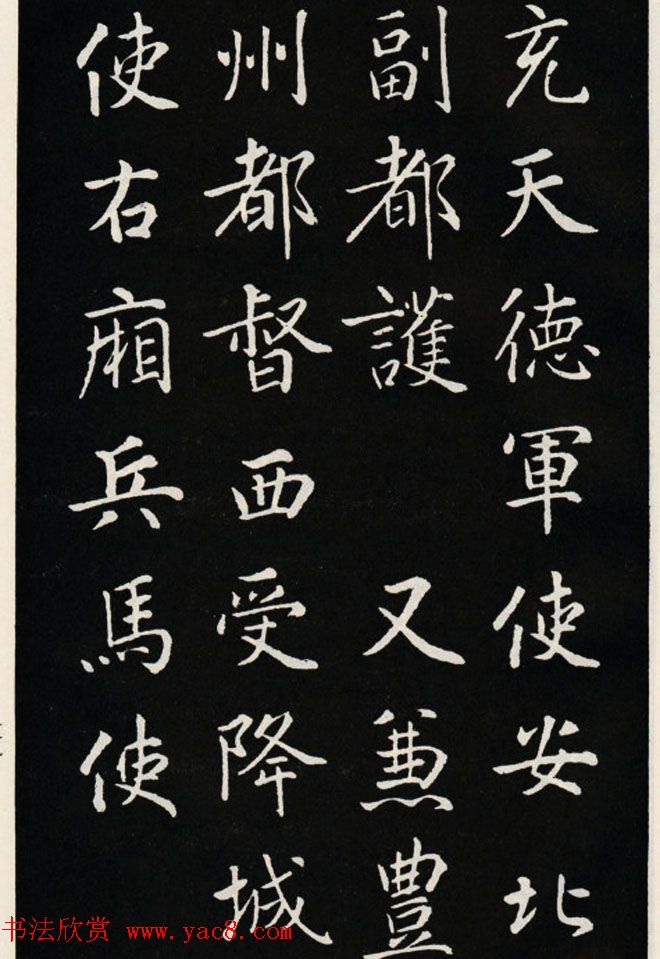 充天德軍使安北
副都護又兼豊
州都督西受降城
使右廂兵馬使
书法欣赏 www.yac8.com